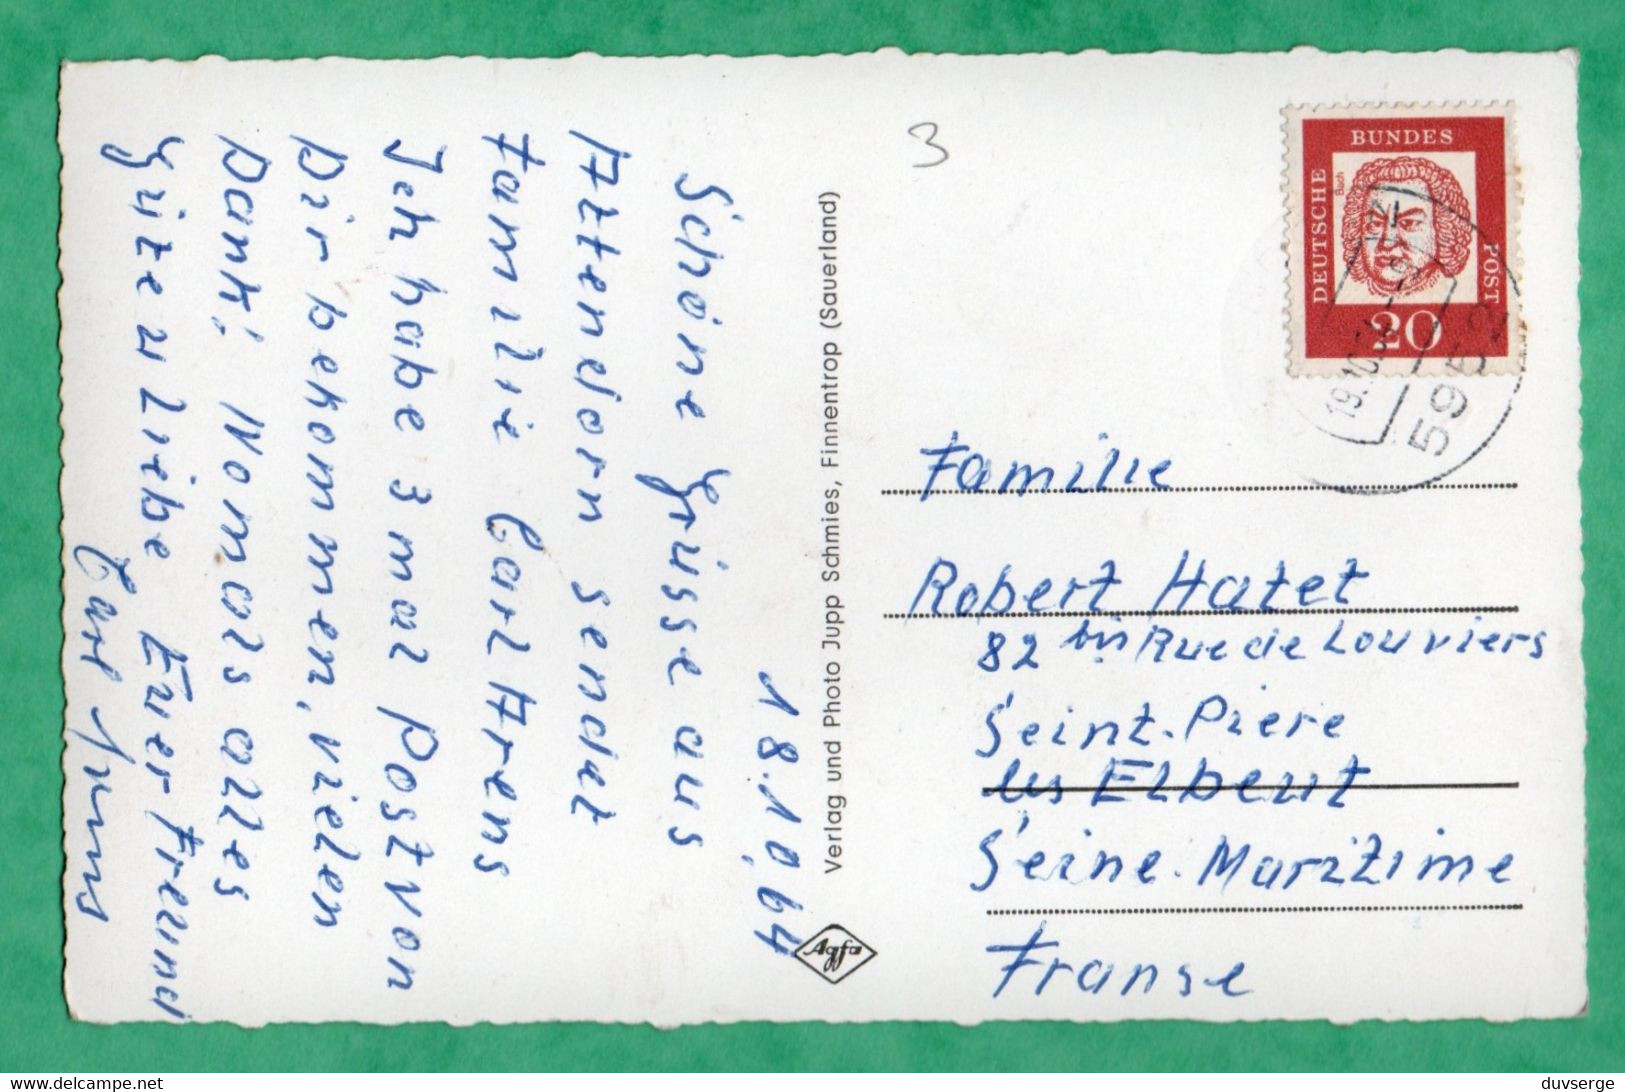 18.10.64
Schöne Grüsse aus
Attendorn sendet
Familie Carl Arens
Ich habe 3 mal Post von
Dir bekommen, vielen
Dank! Nomals alles
Gute u liebe Euer Freund
Carl Arens
Verlag und Photo Jupp Schmies, Finnentrop (Sauerland)
Agfa
3
BUNDES
DEUTSCHE
POST
Bach
20
5952
Familie
Robert Hatet
82 bis Rue de Louviers
Seint-Piere
les Elbeut
Seine-Maritime
Franse
delcampe.net
duvserge